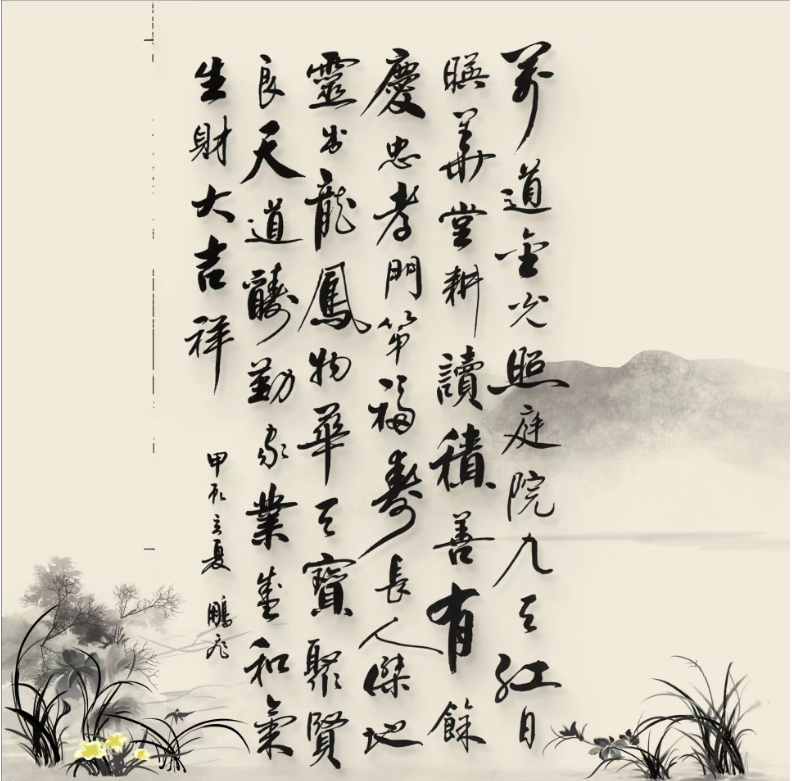 萬道金光照庭院九天紅日
暎華堂耕讀積善有餘
慶忠孝門第福壽長人傑地
靈出龍鳳物華天寶聚賢
良天道醻勤家業盛和氣
生財大吉祥
甲辰立夏 鵬飛